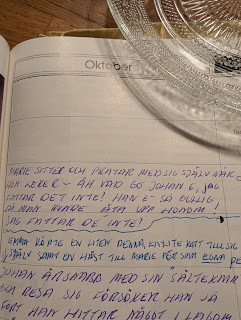 Oktober
MARIE SITTER OCH PRATAR MED SIG SJÄLV NÄR
HON LEKER - ÅH VAD GO JOHAN E, JAG
FATTAR DET INTE! HAN E SÅ GULLIG
SÅ MAN KUNDE ÄTA UPP HONOM!
JAG FATTAR DE INTE!
EMMA KÖPTE EN LITEN DENNA KNYTE KATT TILL SIG
SJÄLV SAMT EN HÄST TILL MARIE FÖR SINA EGNA
JOHAN ÄR SNABB MED SIN
OCH RESA SIG FÖRSÖKER HAN SÅ
FORT HAN HITTAR NÅGOT